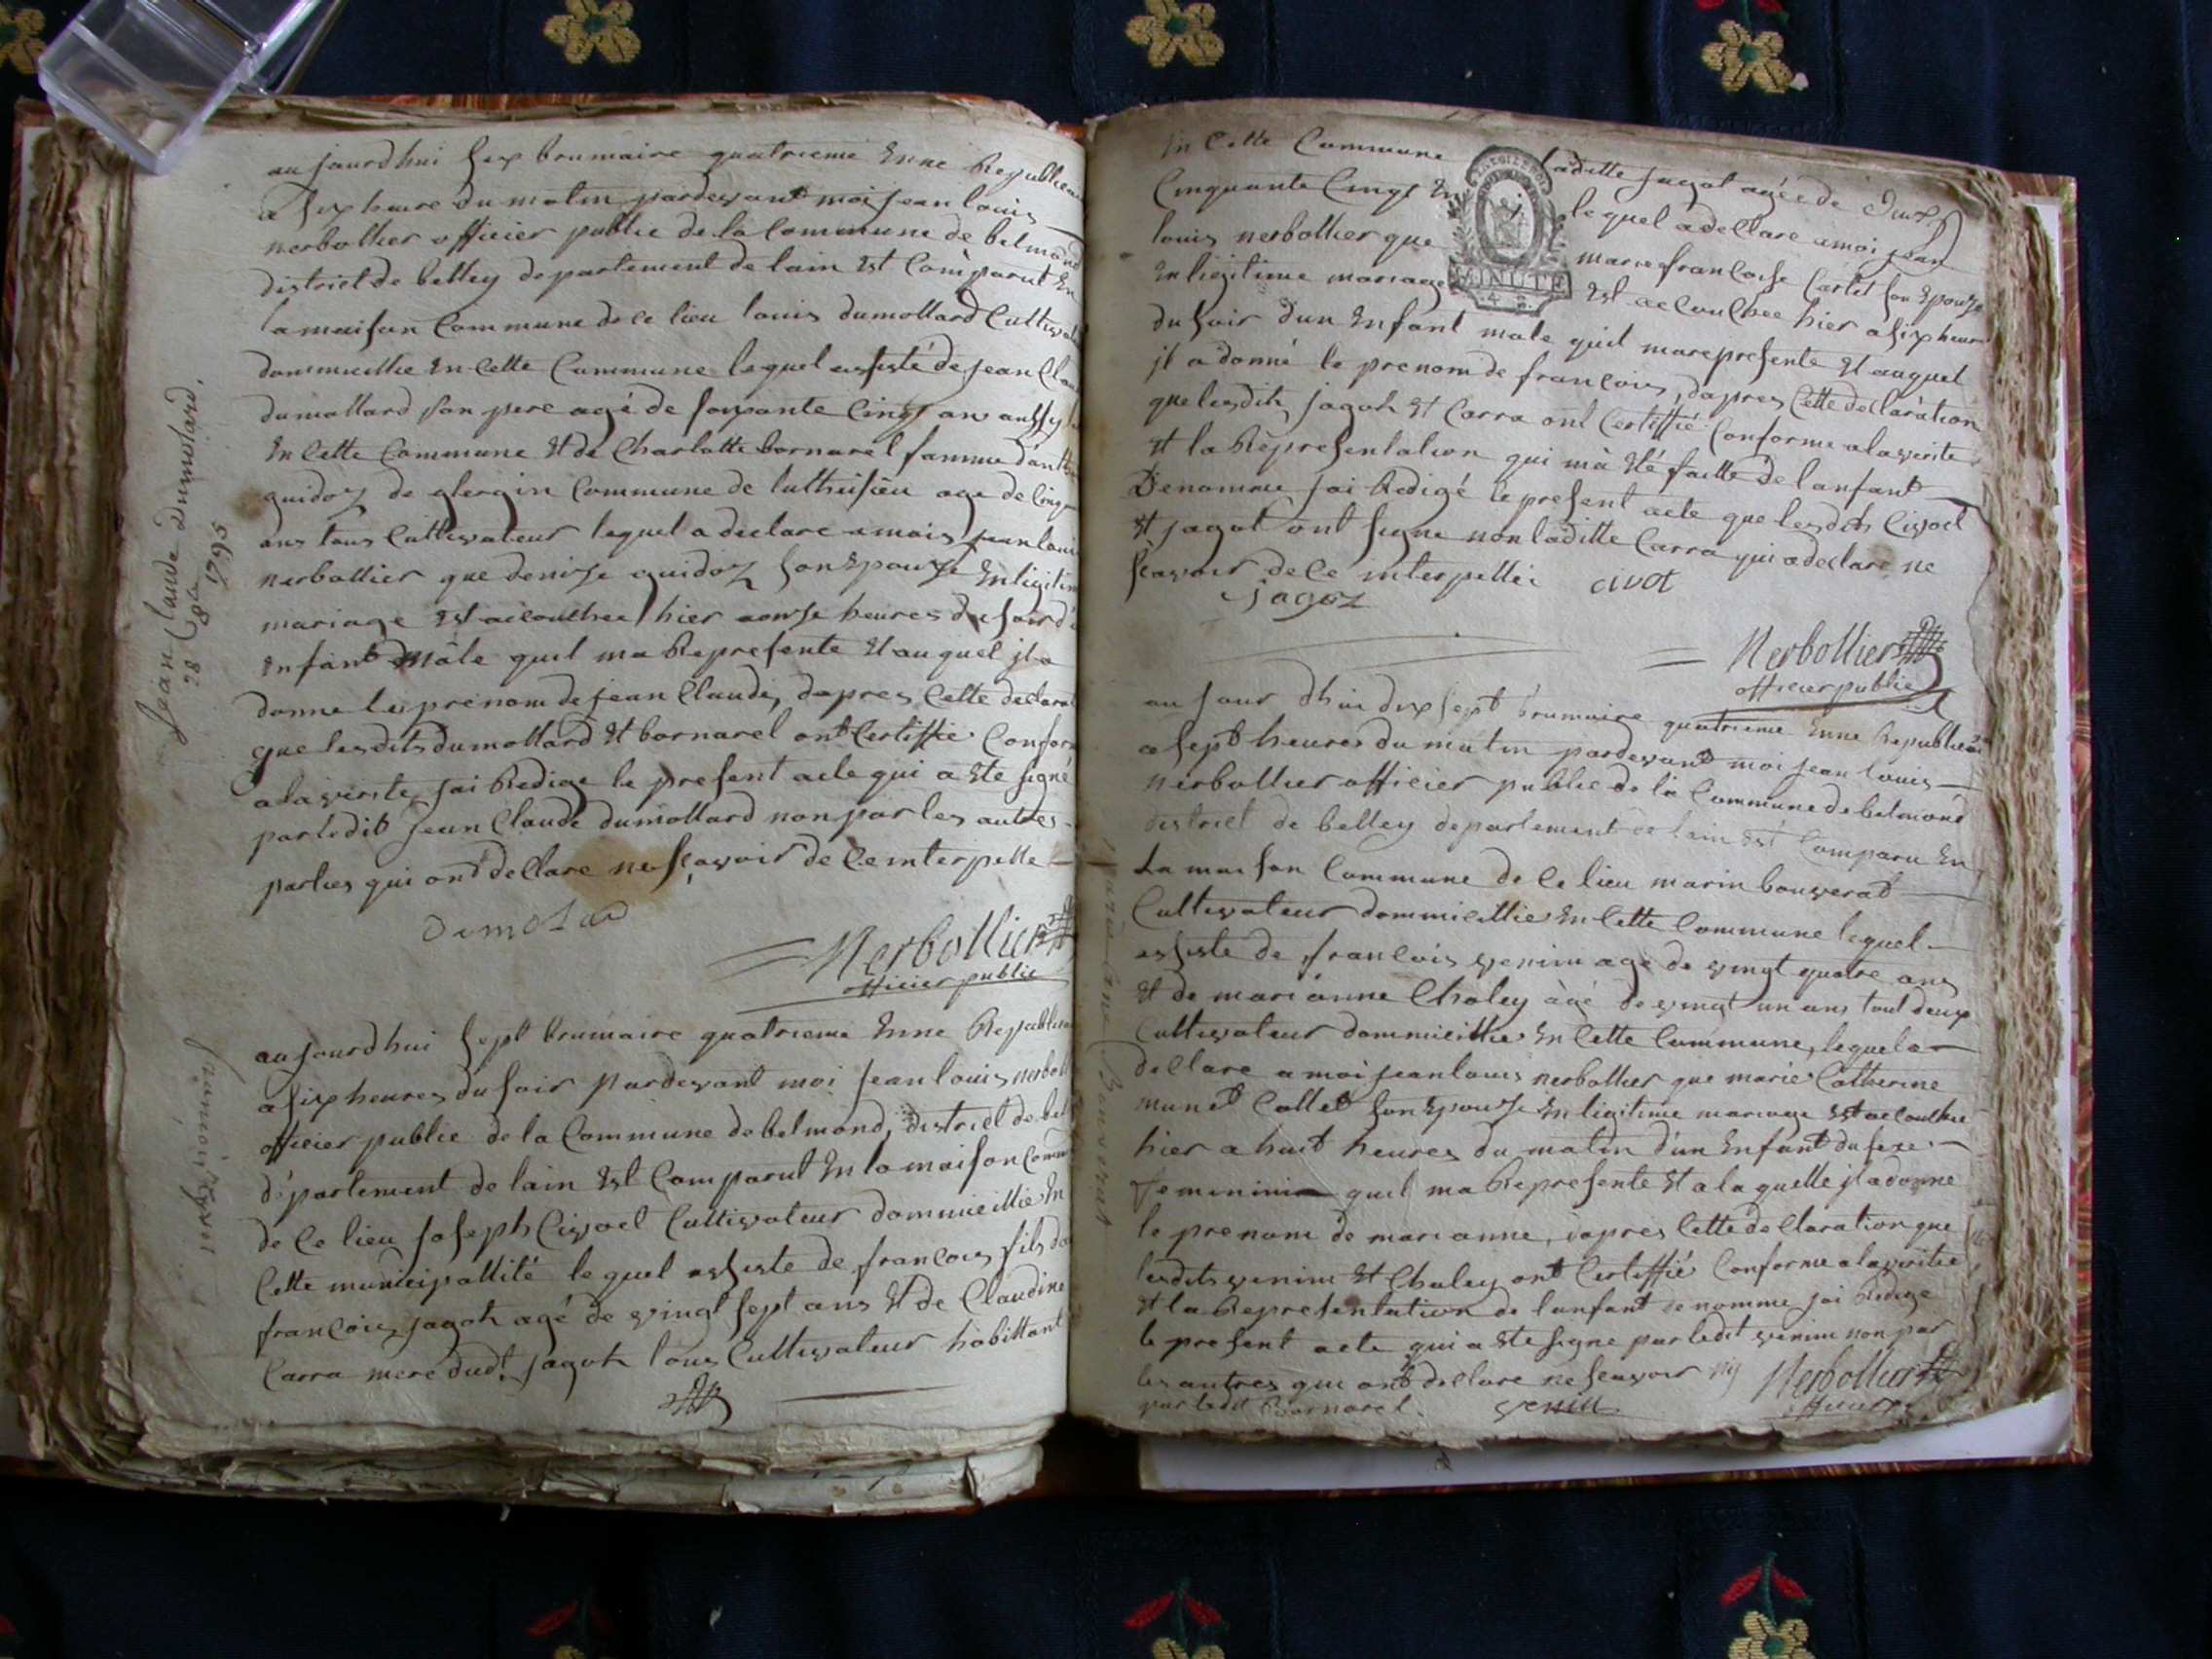 aujourdhui six brumaire quatrieme Enne Republicai
a six heure du matin pardevant moi jean louis
nerbollier officier public de la Commune de belmond
district de belley departement de lain Est Comparut En
la maison Commune de ce lieu louis dumollard Cultivat
dommicillie En Cette Commune lequel assisté de jean Clau
dumollard son pere agé de soixante Cinq ans aussy
En Cette Commune Et de Charlotte bornarel famme d'ant
guidoz de glergin Commune de luthesieu age de Cinq
ans tous Cultivateur lequel a declare a moi jean loui
nerbollier que denize guidoz son Epouze En legitim
mariage Est accouchee hier a onze heures du soir d
Enfant Mâle quil ma Represente Et auquel jl a
donne le prenom de jean Claude, dapres Cette declara
que lesdits dumollard Et bornarel ont Certiffie Confor
a la verite, jai Redige le present acte qui a Ete signé
par ledit jean Claude dumollard non par les autres
parties qui ont declare ne sçavoir de Ce interpelle
Demolard
Nerbollier
officier public
jean Claude Dumolard,
28 8bre 1795
aujourdhui sept brumaire quatrieme Enne Republica
a six heures du soir pardevant moi jean louis nerboll
officier public de la Commune de belmond, district de bel
département de lain Est Comparut En la maison Comm
de Ce lieu joseph Civoct Cultivateur dommicillie En
Cette municipallité lequel assiste de francois fils de
francois jagot agé de vingt sept ans Et de Claudine
Carra mere dudt. jagot tous Cultivateur habittant
francois
In Cette Commune laditte jagot agée de
Cinquante Cinq En lequel a declare a moi jean
louis nerbollier que marie francoise Cartet son Epouze
En legitime mariage Est accouchee hier a six heure
du soir dun Enfant male quil ma represente Et auquel
jl a donné le prenom de francois, dapres Cette declaration
que lesdits jagot Et Carra ont Certiffié Conforme a la verite
Et la Representation qui mà Eté faitte de lanfant
Denomme jai Redigé le present acte que lesdits Civoct
Et jagot ont signe non laditte Carra qui a declare ne
sçavoir de Ce interpellée
MINUTE
4 S.
jagoz
civot
Nerbollier
officier public
aujour dhui dix sept brumaire quatrieme Enne Republicai
a sept heures du matin pardevant moi jean louis
nerbollier officier public de la Commune de belmond
district de belley departement de lain Est Comparu En
La maison Commune de Ce lieu marin bouverat
Cultivateur dommicillie En Cette Commune lequel
assiste de francois venin agé de vingt quatre ans
Et de marianne Chaley àgé de vingt un ans tout deux
Cultivateur dommicillie En Cette Commune, lequel a
declare a moi jean louis nerbollier que marie Catherine
munet Collet son Epouze En legitime mariage Est accouchee
hier a huit heures du matin d'un Enfant du sexe
feminin quil ma Represente Et a laquelle jl a donne
le prenom de marianne, dapres Cette declaration que
lesdits venin Et Chaley ont Certiffié Conforme a la verite
Et la Representation de lanfant denomme jai Redige
le present acte qui a Ete signe par ledit venin non par
les autres qui ont declare ne scavoir ny
par ledit Bornarel.
venin
Nerbollier
officier